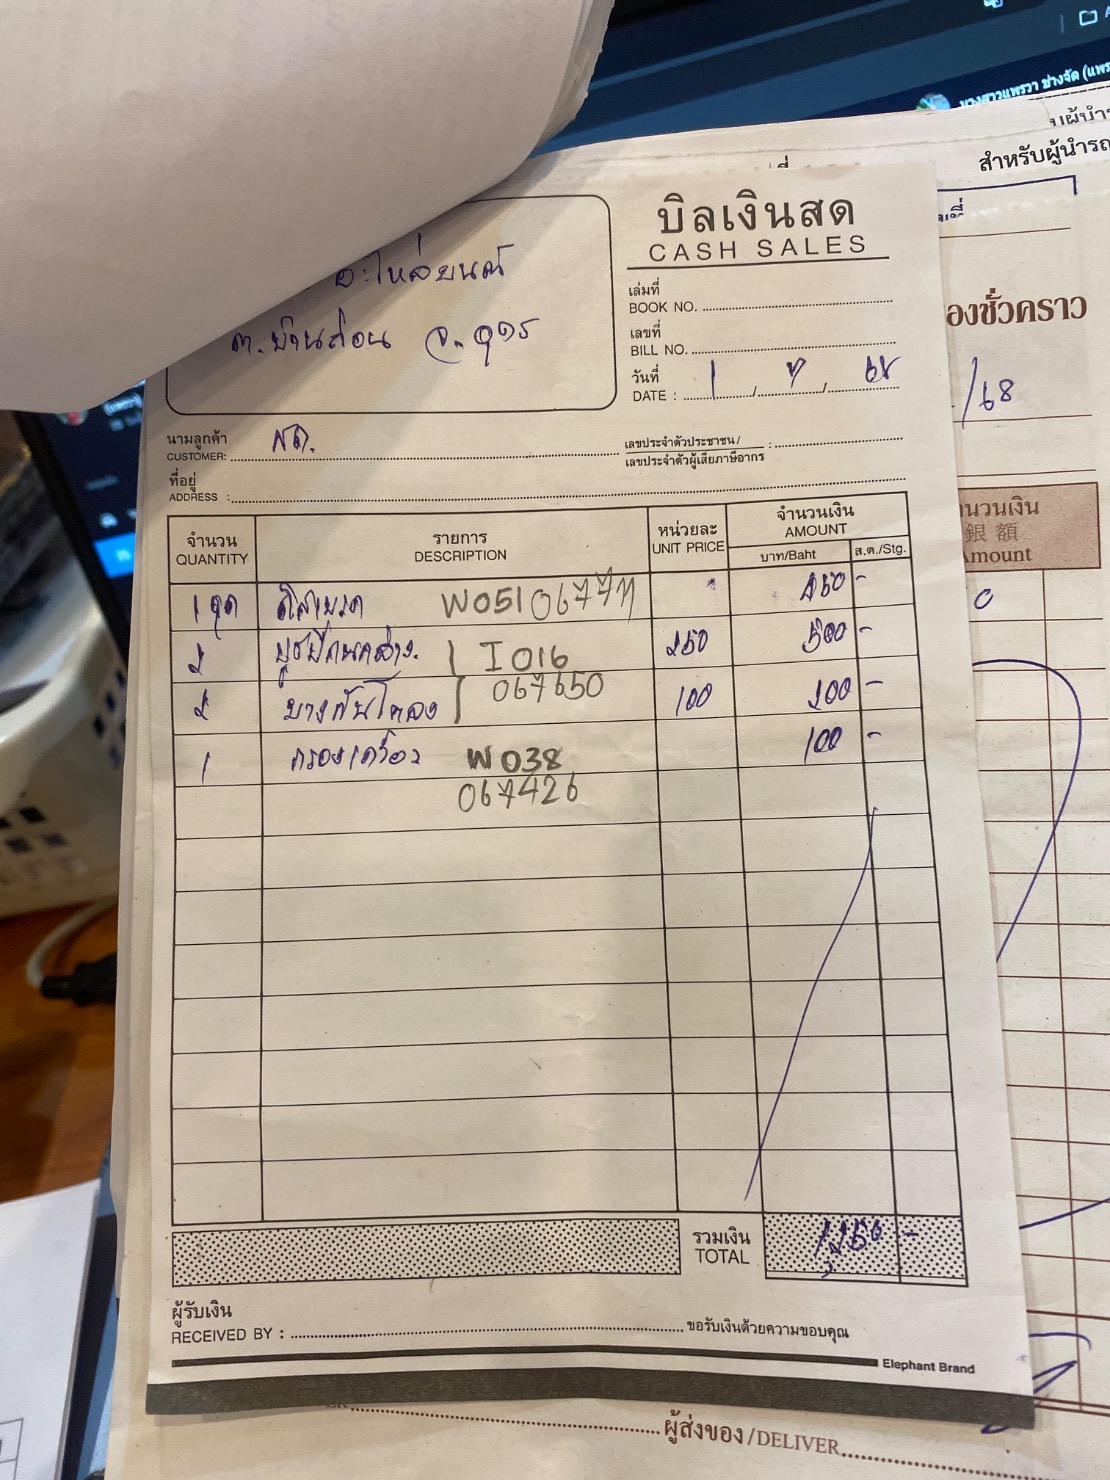 นางสาวแพรวา ช่างจัด (แพร
สำหรับผู้นำรถ
บิลเงินสด
CASH SALES
อะไหล่ยนต์
ต.บ้านก้อน จ.อุดร
เล่มที่
BOOK NO.
เลขที่
BILL NO.
วันที่
DATE : 1 / 7 / 68
องชั่วคราว
/68
นามลูกค้า
CUSTOMER: สด.
เลขประจำตัวประชาชน/
เลขประจำตัวผู้เสียภาษีอากร
ที่อยู่
ADDRESS :
จำนวน รายการ หน่วยละ จำนวนเงิน
QUANTITY DESCRIPTION UNIT PRICE AMOUNT
บาท/Baht ส.ต./Stg.
นวนเงิน
銀 額
mount
1 ชุด ดิสเบรค W051 450 -
2 บูชปีกนกล่าง I 016 250 500 -
067650
2 ยางกันโคลง 100 200 -
1 กรองเครื่อง W038 100 -
067426
รวมเงิน
TOTAL 1,250 -
ผู้รับเงิน
RECEIVED BY : ขอรับเงินด้วยความขอบคุณ
Elephant Brand
ผู้ส่งของ/DELIVER